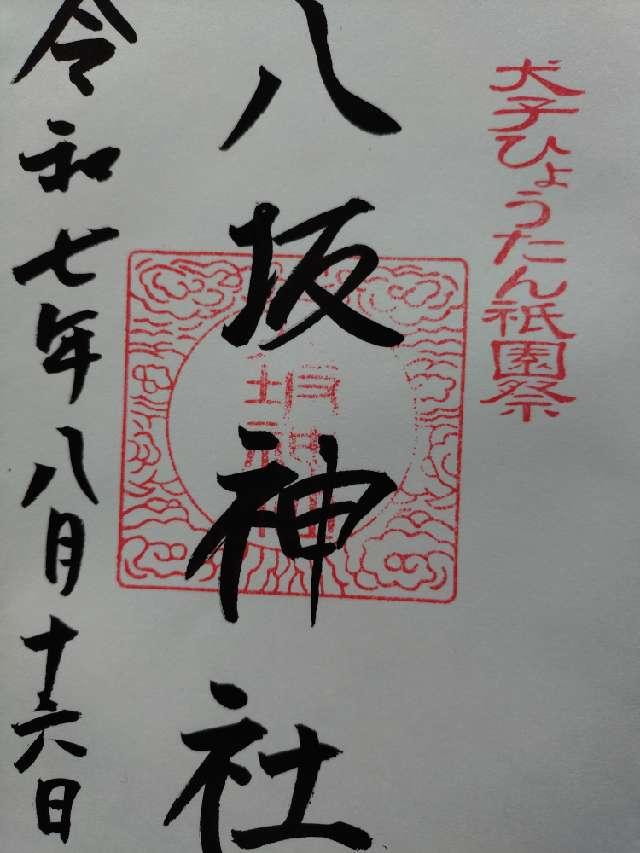 犬子ひょうたん祇園祭
八坂神社
令和七年八月十六日